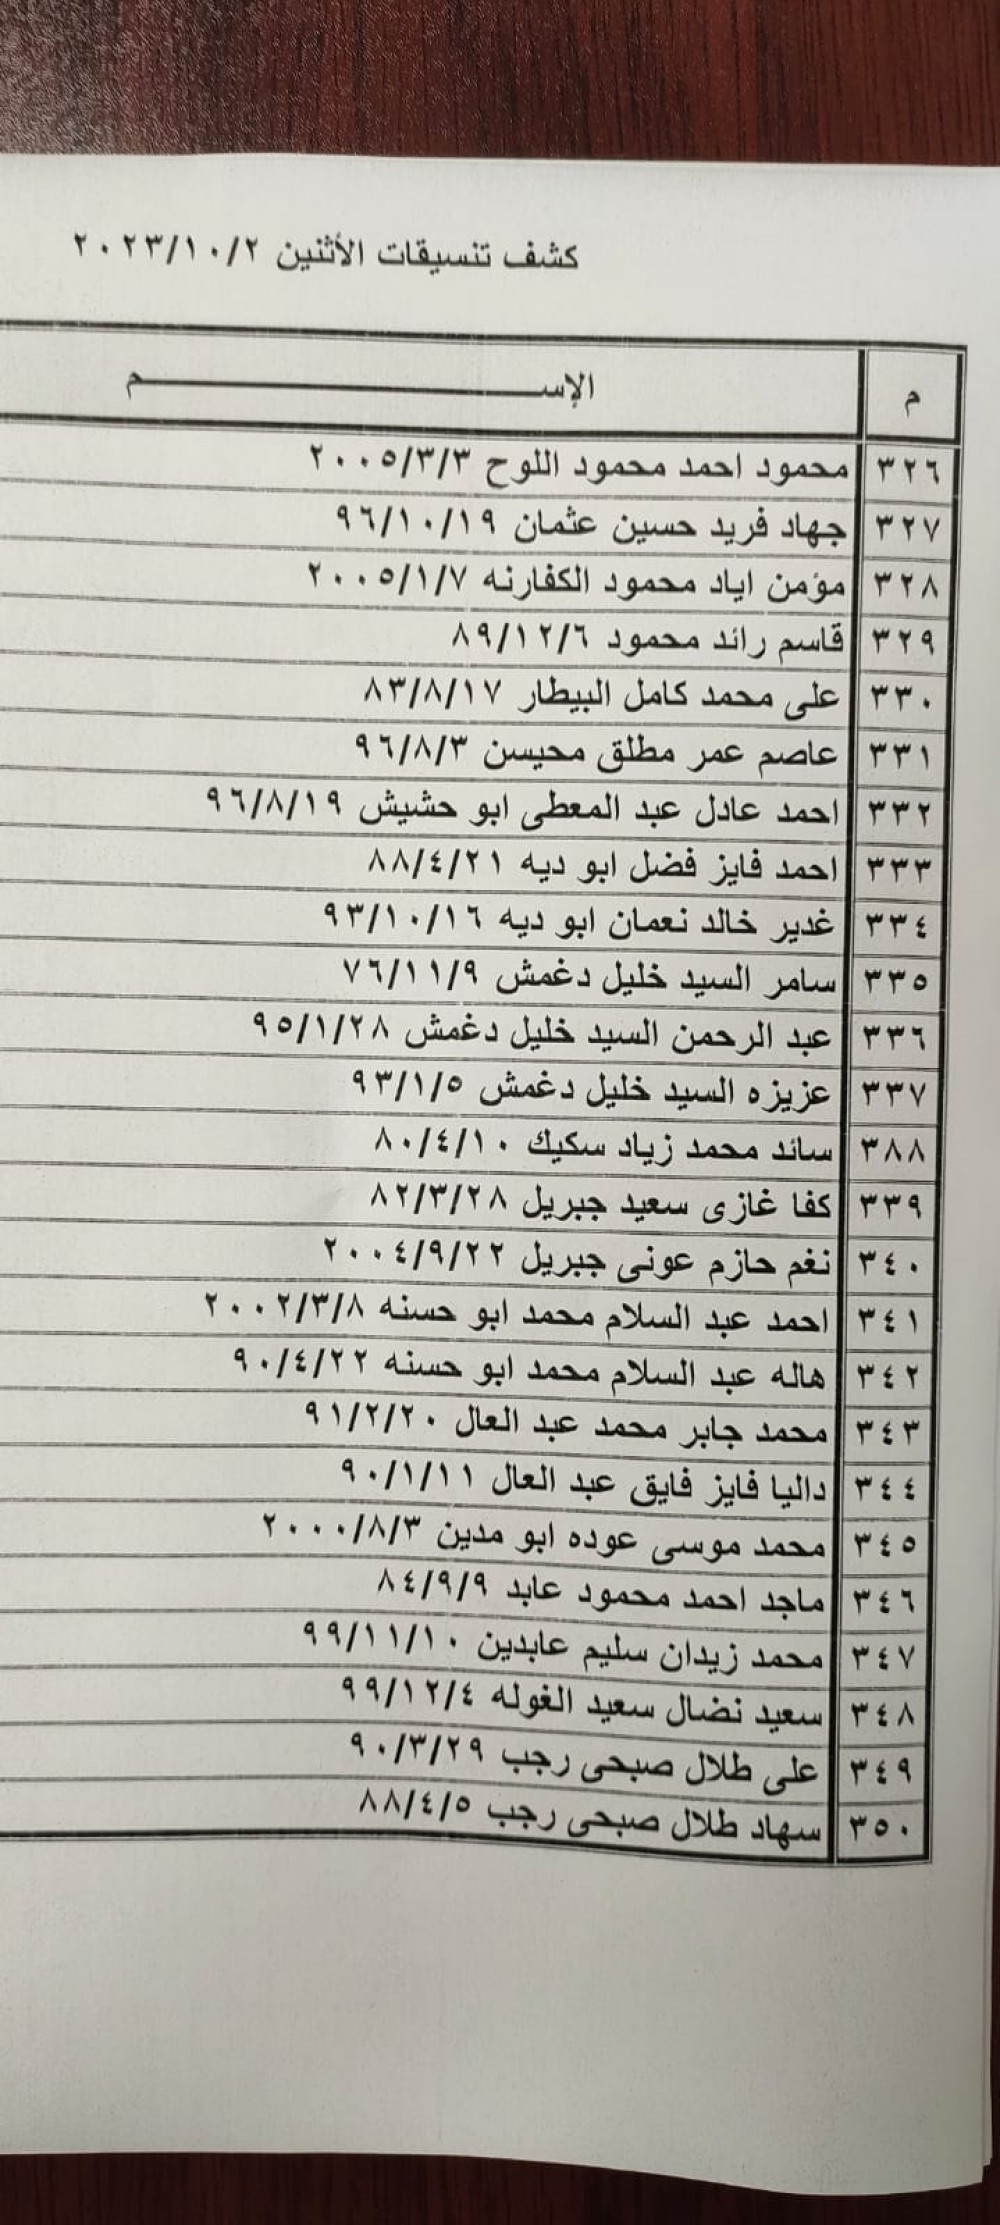 كشف تنسيقات الأثنين ٢٠٢٣/١٠/٢
م الإســـــــــم
٣٢٦ محمود احمد محمود اللوح ٢٠٠٥/٣/٣
٣٢٧ جهاد فريد حسين عثمان ٩٦/١٠/١٩
٣٢٨ مؤمن اياد محمود الكفارنه ٢٠٠٥/١/٧
٣٢٩ قاسم رائد محمود ٨٩/١٢/٦
٣٣٠ على محمد كامل البيطار ٨٣/٨/١٧
٣٣١ عاصم عمر مطلق محيسن ٩٦/٨/٣
٣٣٢ احمد عادل عبد المعطى ابو حشيش ٩٦/٨/١٩
٣٣٣ احمد فايز فضل ابو ديه ٨٨/٤/٢١
٣٣٤ غدير خالد نعمان ابو ديه ٩٣/١٠/١٦
٣٣٥ سامر السيد خليل دغمش ٧٦/١١/٩
٣٣٦ عبد الرحمن السيد خليل دغمش ٩٥/١/٢٨
٣٣٧ عزيزه السيد خليل دغمش ٩٣/١/٥
٣٨٨ سائد محمد زياد سكيك ٨٠/٤/١٠
٣٣٩ كفا غازى سعيد جبريل ٨٢/٣/٢٨
٣٤٠ نغم حازم عونى جبريل ٢٠٠٤/٩/٢٢
٣٤١ احمد عبد السلام محمد ابو حسنه ٢٠٠٢/٣/٨
٣٤٢ هاله عبد السلام محمد ابو حسنه ٩٠/٤/٢٢
٣٤٣ محمد جابر محمد عبد العال ٩١/٢/٢٠
٣٤٤ داليا فايز فايق عبد العال ٩٠/١/١١
٣٤٥ محمد موسى عوده ابو مدين ٢٠٠٠/٨/٣
٣٤٦ ماجد احمد محمود عابد ٨٤/٩/٩
٣٤٧ محمد زيدان سليم عابدين ٩٩/١١/١٠
٣٤٨ سعيد نضال سعيد الغوله ٩٩/١٢/٤
٣٤٩ على طلال صبحى رجب ٩٠/٣/٢٩
٣٥٠ سهاد طلال صبحى رجب ٨٨/٤/٥